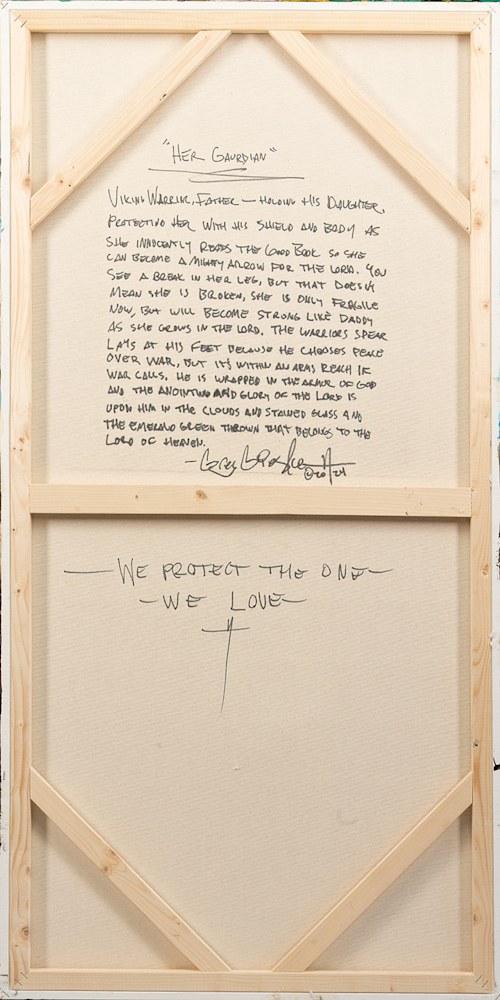 "HER GAURDIAN"
VIKING WARRIOR, FATHER — HOLDING HIS DAUGHTER,
PROTECTING HER WITH HIS SHIELD AND BODY AS
SHE INNOCENTLY READS THE GOOD BOOK SO SHE
CAN BECOME A MIGHTY ARROW FOR THE LORD. YOU
SEE A BREAK IN HER LEG, BUT THAT DOESN'T
MEAN SHE IS BROKEN, SHE IS ONLY FRAGILE
NOW, BUT WILL BECOME STRONG LIKE DADDY
AS SHE GROWS IN THE LORD. THE WARRIORS SPEAR
LAYS AT HIS FEET BECAUSE HE CHOOSES PEACE
OVER WAR, BUT ITS WITHIN AN ARMS REACH IF
WAR CALLS. HE IS WRAPPED IN THE ARMOR OF GOD
AND THE ANOINTING AND GLORY OF THE LORD IS
UPON HIM IN THE CLOUDS AND STAINED GLASS AND
THE EMERALD GREEN THROWN THAT BELONGS TO THE
LORD OF HEAVEN.
©20/24
— WE PROTECT THE ONE —
— WE LOVE —